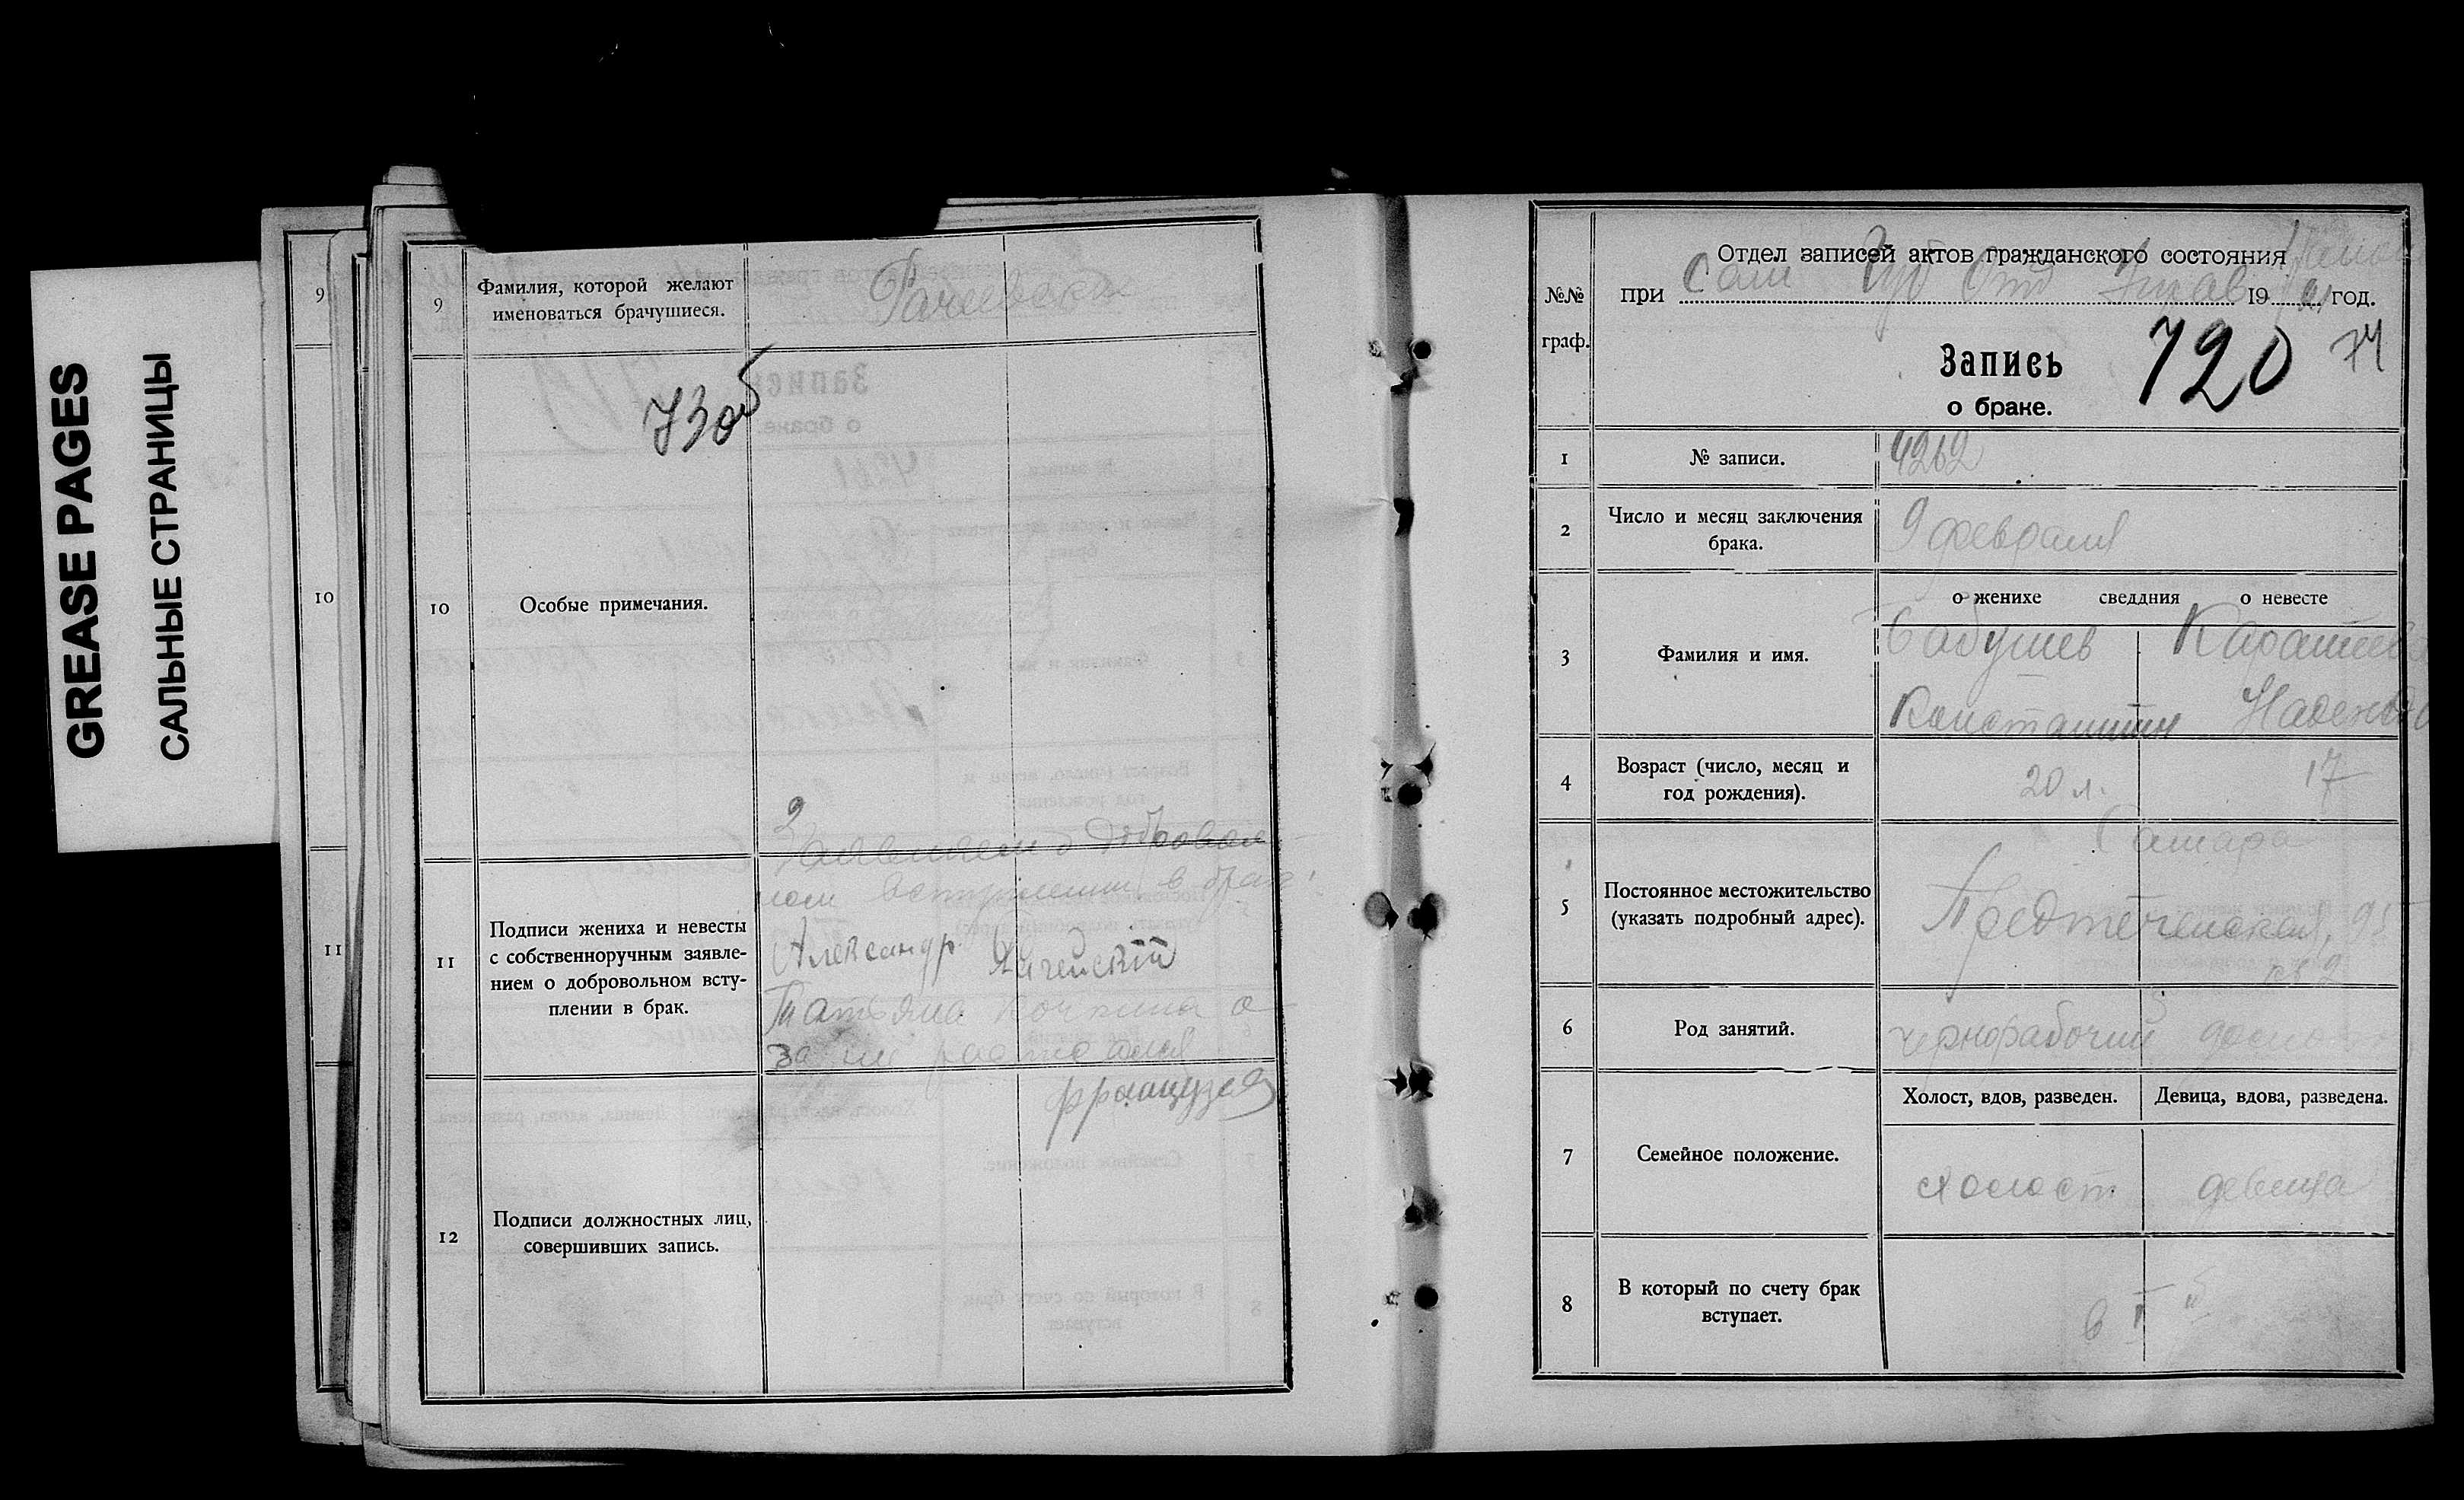 GREASE PAGES
САЛЬНЫЕ СТРАНИЦЫ
9
10
11
9
Фамилия, которой желают
именоваться брачушиеся.
73об
10
Особые примечания.
11
Подписи жениха и невесты
с собственноручным заявле-
нием о добровольном всту-
плении в брак.
Заявляем о добровол-
ном вступлении в брак
Александр
Татьяна
12
Подписи должностных лиц,
совершивших запись.
№№
граф.
Отдел записей актов гражданского состояния
при Сам Губ Отд 19 21 год.
Запись
о браке.
720
74
1
№ записи.
4262
2
Число и месяц заключения
брака.
9 февраля
о женихе сведдния о невесте
3
Фамилия и имя.
Бабушев
Константин
Надежда
4
Возраст (число, месяц и
год рождения).
20 л.
17
5
Постоянное местожительство
(указать подробный адрес).
Самара
Предтеченская, 95
кв 2
6
Род занятий.
чернорабочий
7
Семейное положение.
Холост, вдов, разведен.
Девица, вдова, разведена.
холост
девица
8
В который по счету брак
вступает.
в I й